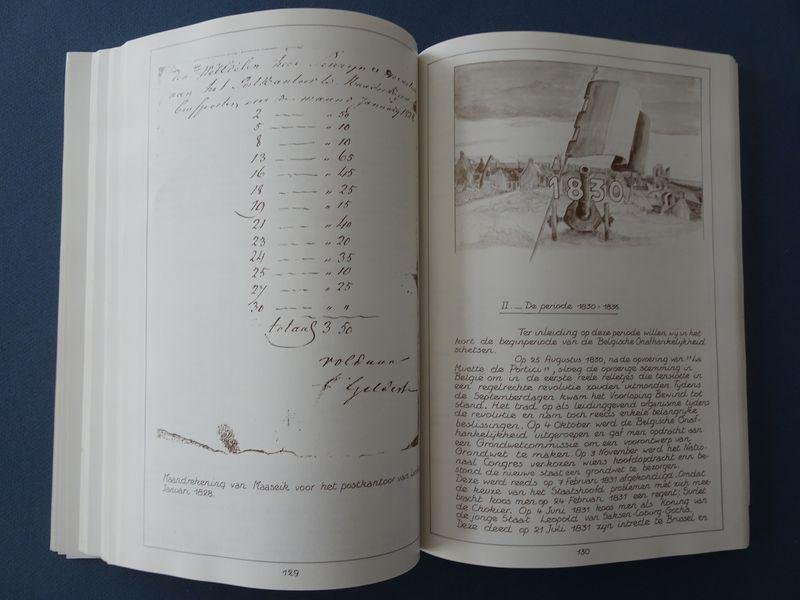 den Weledelen heer
van het Postkantoor te
over de maand January 1828
2 —— " 50
5 —— " 10
8 —— " 10
13 —— " 65
16 —— " 45
18 —— " 25
19 —— " 15
21 —— " 40
23 —— " 20
24 —— " 35
25 —— " 10
27 —— " 25
30 —— " "
totaal 3 50
voldaan
Maandrekening van Maaseik voor het postkantoor van
Januari 1828.
129
1830
II. _ De periode 1830 - 1835.
Ter inleiding op deze periode willen wij in het
kort de beginperiode van de Belgische Onafhankelijkheid
schetsen.
Op 25 Augustus 1830, na de opvoering van "La
Muette de Portici", sloeg de oproerige stemming in
België om in de eerste reële relletjes die tenslotte in
een regelrechte revolutie zouden uitmonden. Tijdens
de Septemberdagen kwam het Voorlopig Bewind tot
stand. Het trad op als leidinggevend organisme tijdens
de revolutie en nam toch reeds enkele belangrijke
beslissingen. Op 4 Oktober werd de Belgische Onaf-
hankelijkheid uitgeroepen en gaf men opdracht aan
een Grondwetcommissie om een voorontwerp van
Grondwet te maken. Op 3 November werd het Natio-
naal Congres verkozen wiens hoofdopdracht erin be-
stond de nieuwe staat een grondwet te bezorgen.
Deze werd reeds op 7 Februari 1831 afgekondigd. Omdat
de keuze van het Staatshoofd problemen met zich mee-
bracht koos men op 24 Februari 1831 een regent: Surlet
de Chokier. Op 4 Juni 1831 koos men als Koning van
de jonge Staat Leopold van Saksen-Coburg-Gotha.
Deze deed op 21 Juli 1831 zijn intrede te Brussel en
130